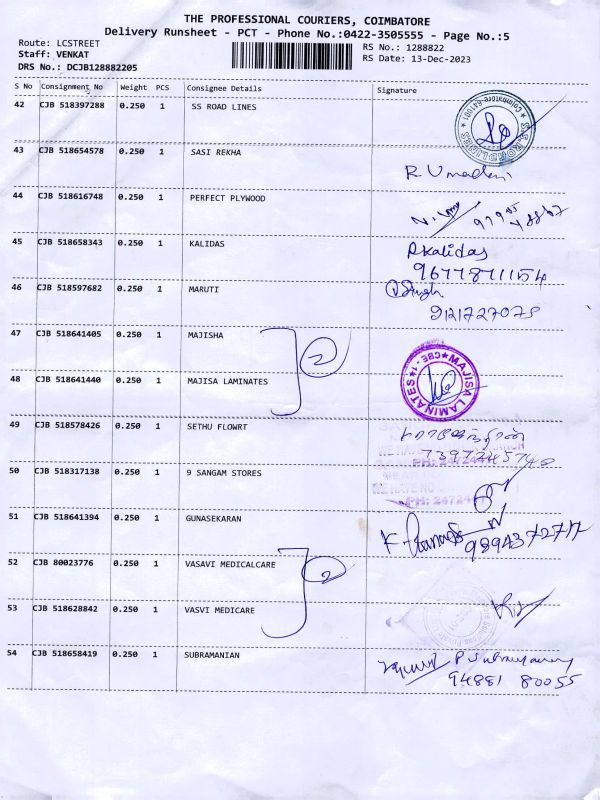 THE PROFESSIONAL COURIERS, COIMBATORE
Delivery Runsheet - PCT - Phone No.:0422-3505555 - Page No.:5
Route: LCSTREET
Staff: VENKAT
DRS No.: DCJB128882205
RS No.: 1288822
RS Date: 13-Dec-2023
S No Consignment No Weight PCS Consignee Details Signature
42 CJB 518397288 0.250 1 SS ROAD LINES
43 CJB 518654578 0.250 1 SASI REKHA
R Umadevi
44 CJB 518616748 0.250 1 PERFECT PLYWOOD
45 CJB 518658343 0.250 1 KALIDAS
P.Kalidas
9677871154
46 CJB 518597682 0.250 1 MARUTI
Singh
9121727078
47 CJB 518641405 0.250 1 MAJISHA
2
48 CJB 518641440 0.250 1 MAJISA LAMINATES
★ MAJISA LAMINATES ★ CBE - 1
49 CJB 518578426 0.250 1 SETHU FLOWRT
7397245740
50 CJB 518317138 0.250 1 9 SANGAM STORES
51 CJB 518641394 0.250 1 GUNASEKARAN
9894372717
52 CJB 80023776 0.250 1 VASAVI MEDICALCARE
2
53 CJB 518628842 0.250 1 VASVI MEDICARE
54 CJB 518658419 0.250 1 SUBRAMANIAN
94881 80055